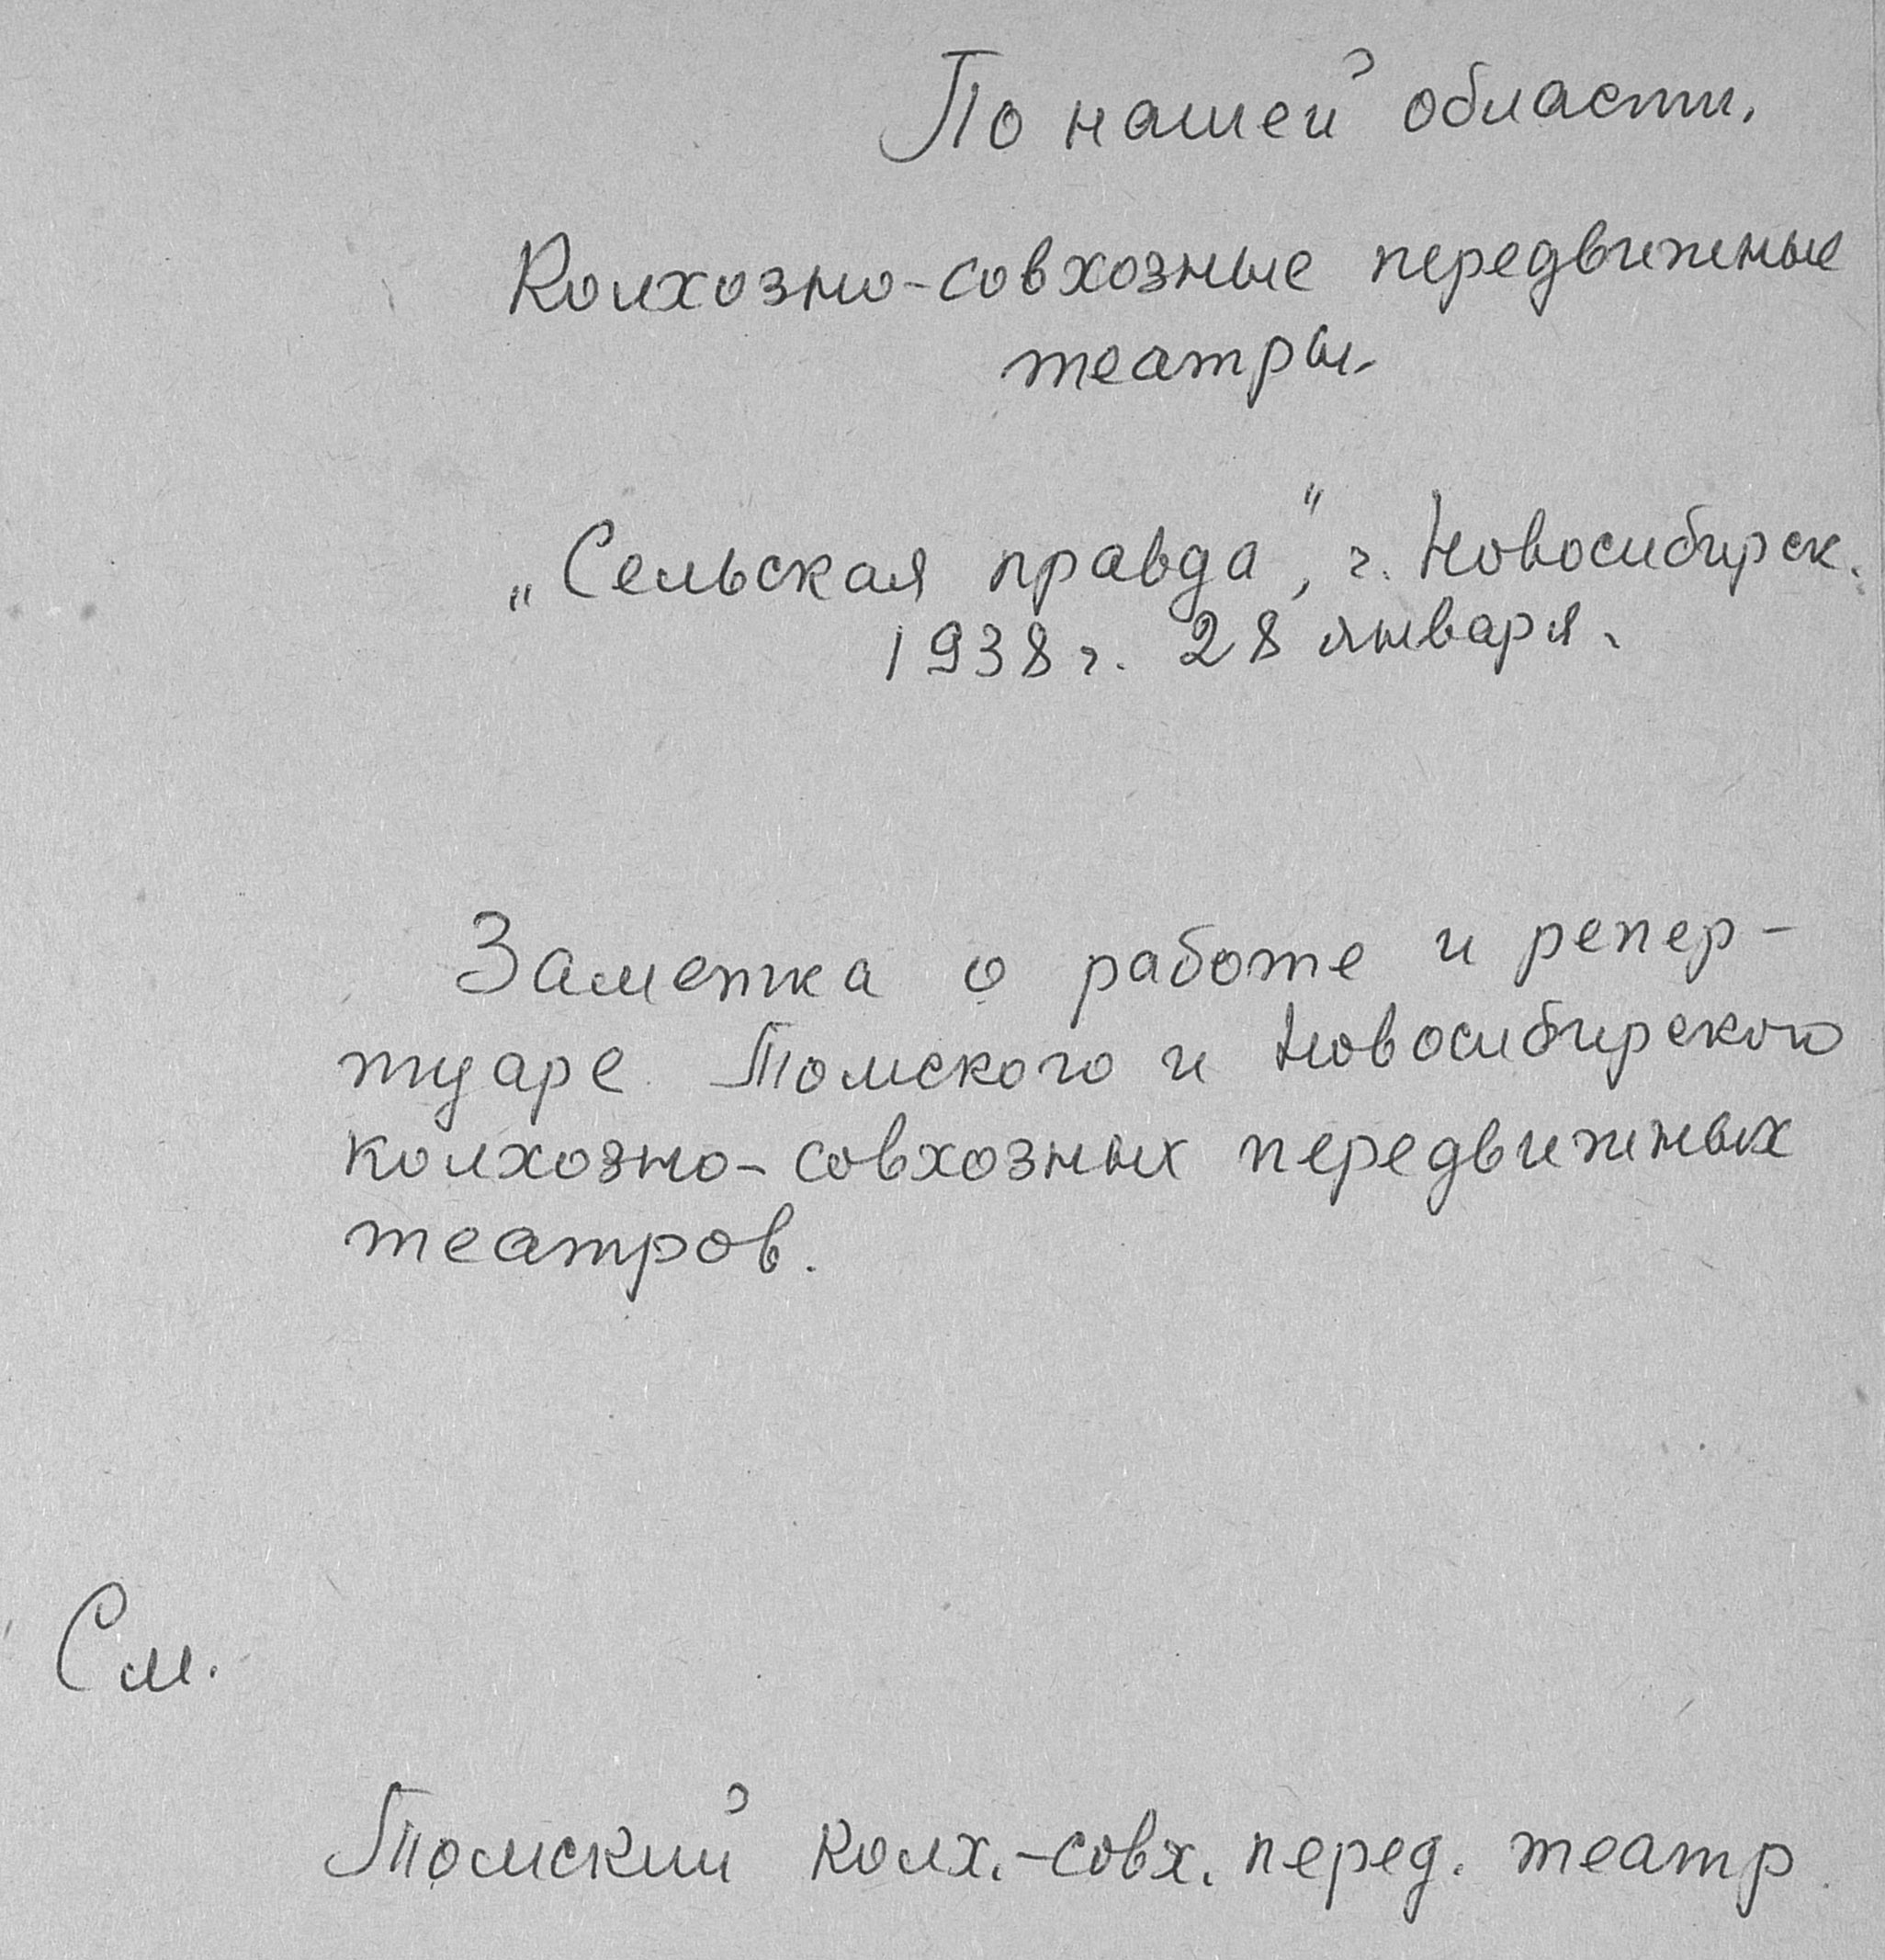 По нашей области.
Колхозно-совхозные передвижные
театры.
„Сельская правда", г. Новосибирск.
1938 г. 28 января.
Заметка о работе и репер-
туаре Томского и Новосибирского
колхозно-совхозных передвижных
театров.
См.
Томский колх.-совх. перед. театр.